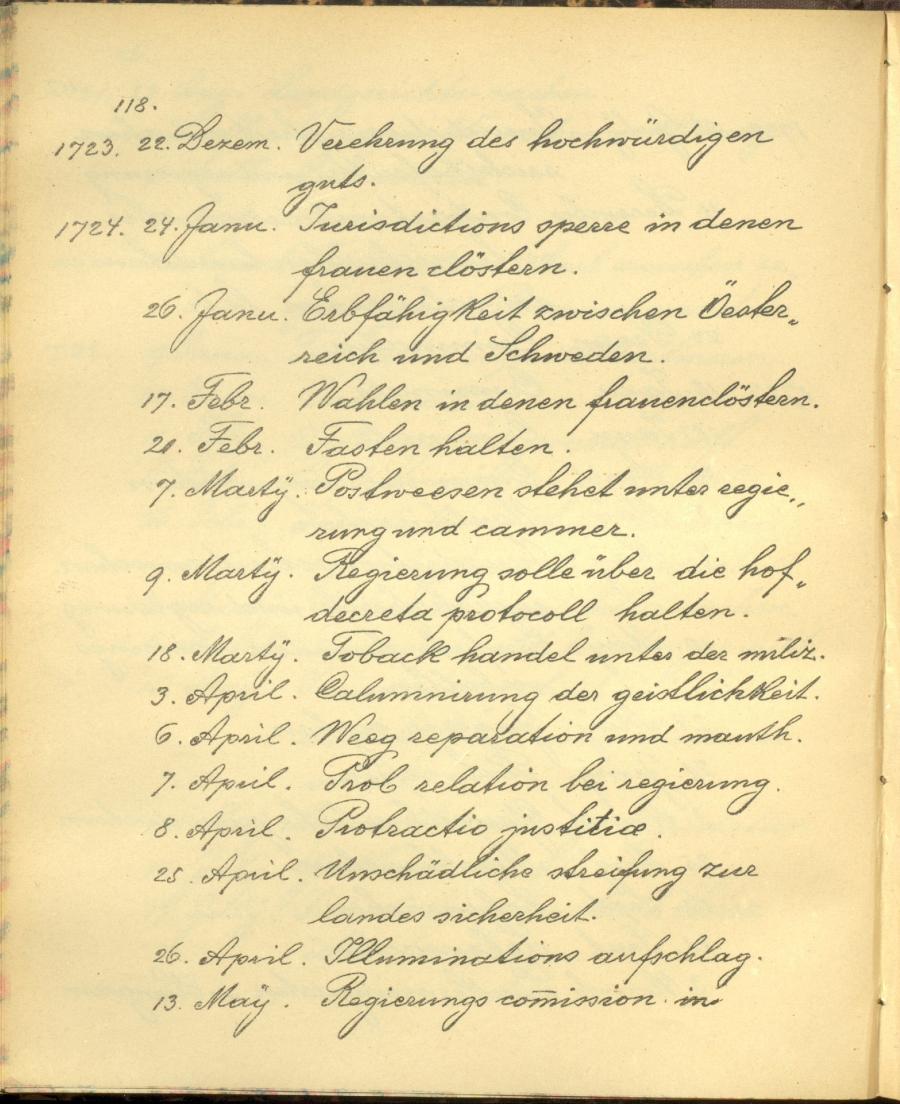 118.
1723. 22. Dezem. Verehrung des hochwürdigen
guts.
1724. 24. Janu. Jurisdictions sperre in denen
frauen clöstern.
26. Janu. Erbfähigkeit zwischen Öester„
reich und Schweden.
17. Febr. Wahlen in denen frauenclöstern.
20. Febr. Fasten halten.
7. Martÿ. Postweesen stehet unter regie„
rung und cammer.
9. Martÿ. Regierung solle über die hof„
decreta protocoll halten.
18. Martÿ. Toback handel unter der miliz.
3. April. Calumnirung der geistlichkeit.
6. April. Weeg reparation und mauth.
7. April. Prob relation bei regierung.
8. April. Protractio justitiæ.
25. April. Unschädliche streifung zur
landes sicherheit.
26. April. Illuminations aufschlag.
13. Maÿ. Regierungs com̅ission in